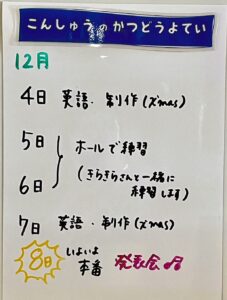 こんしゅうのかつどうよてい
12月
4日 英語・制作(X'mas)
5日
ホールで練習
6日
(きらきらさんと一緒に
練習します)
7日 英語・制作(X'mas)
8日 いよいよ
本番 発表会♪